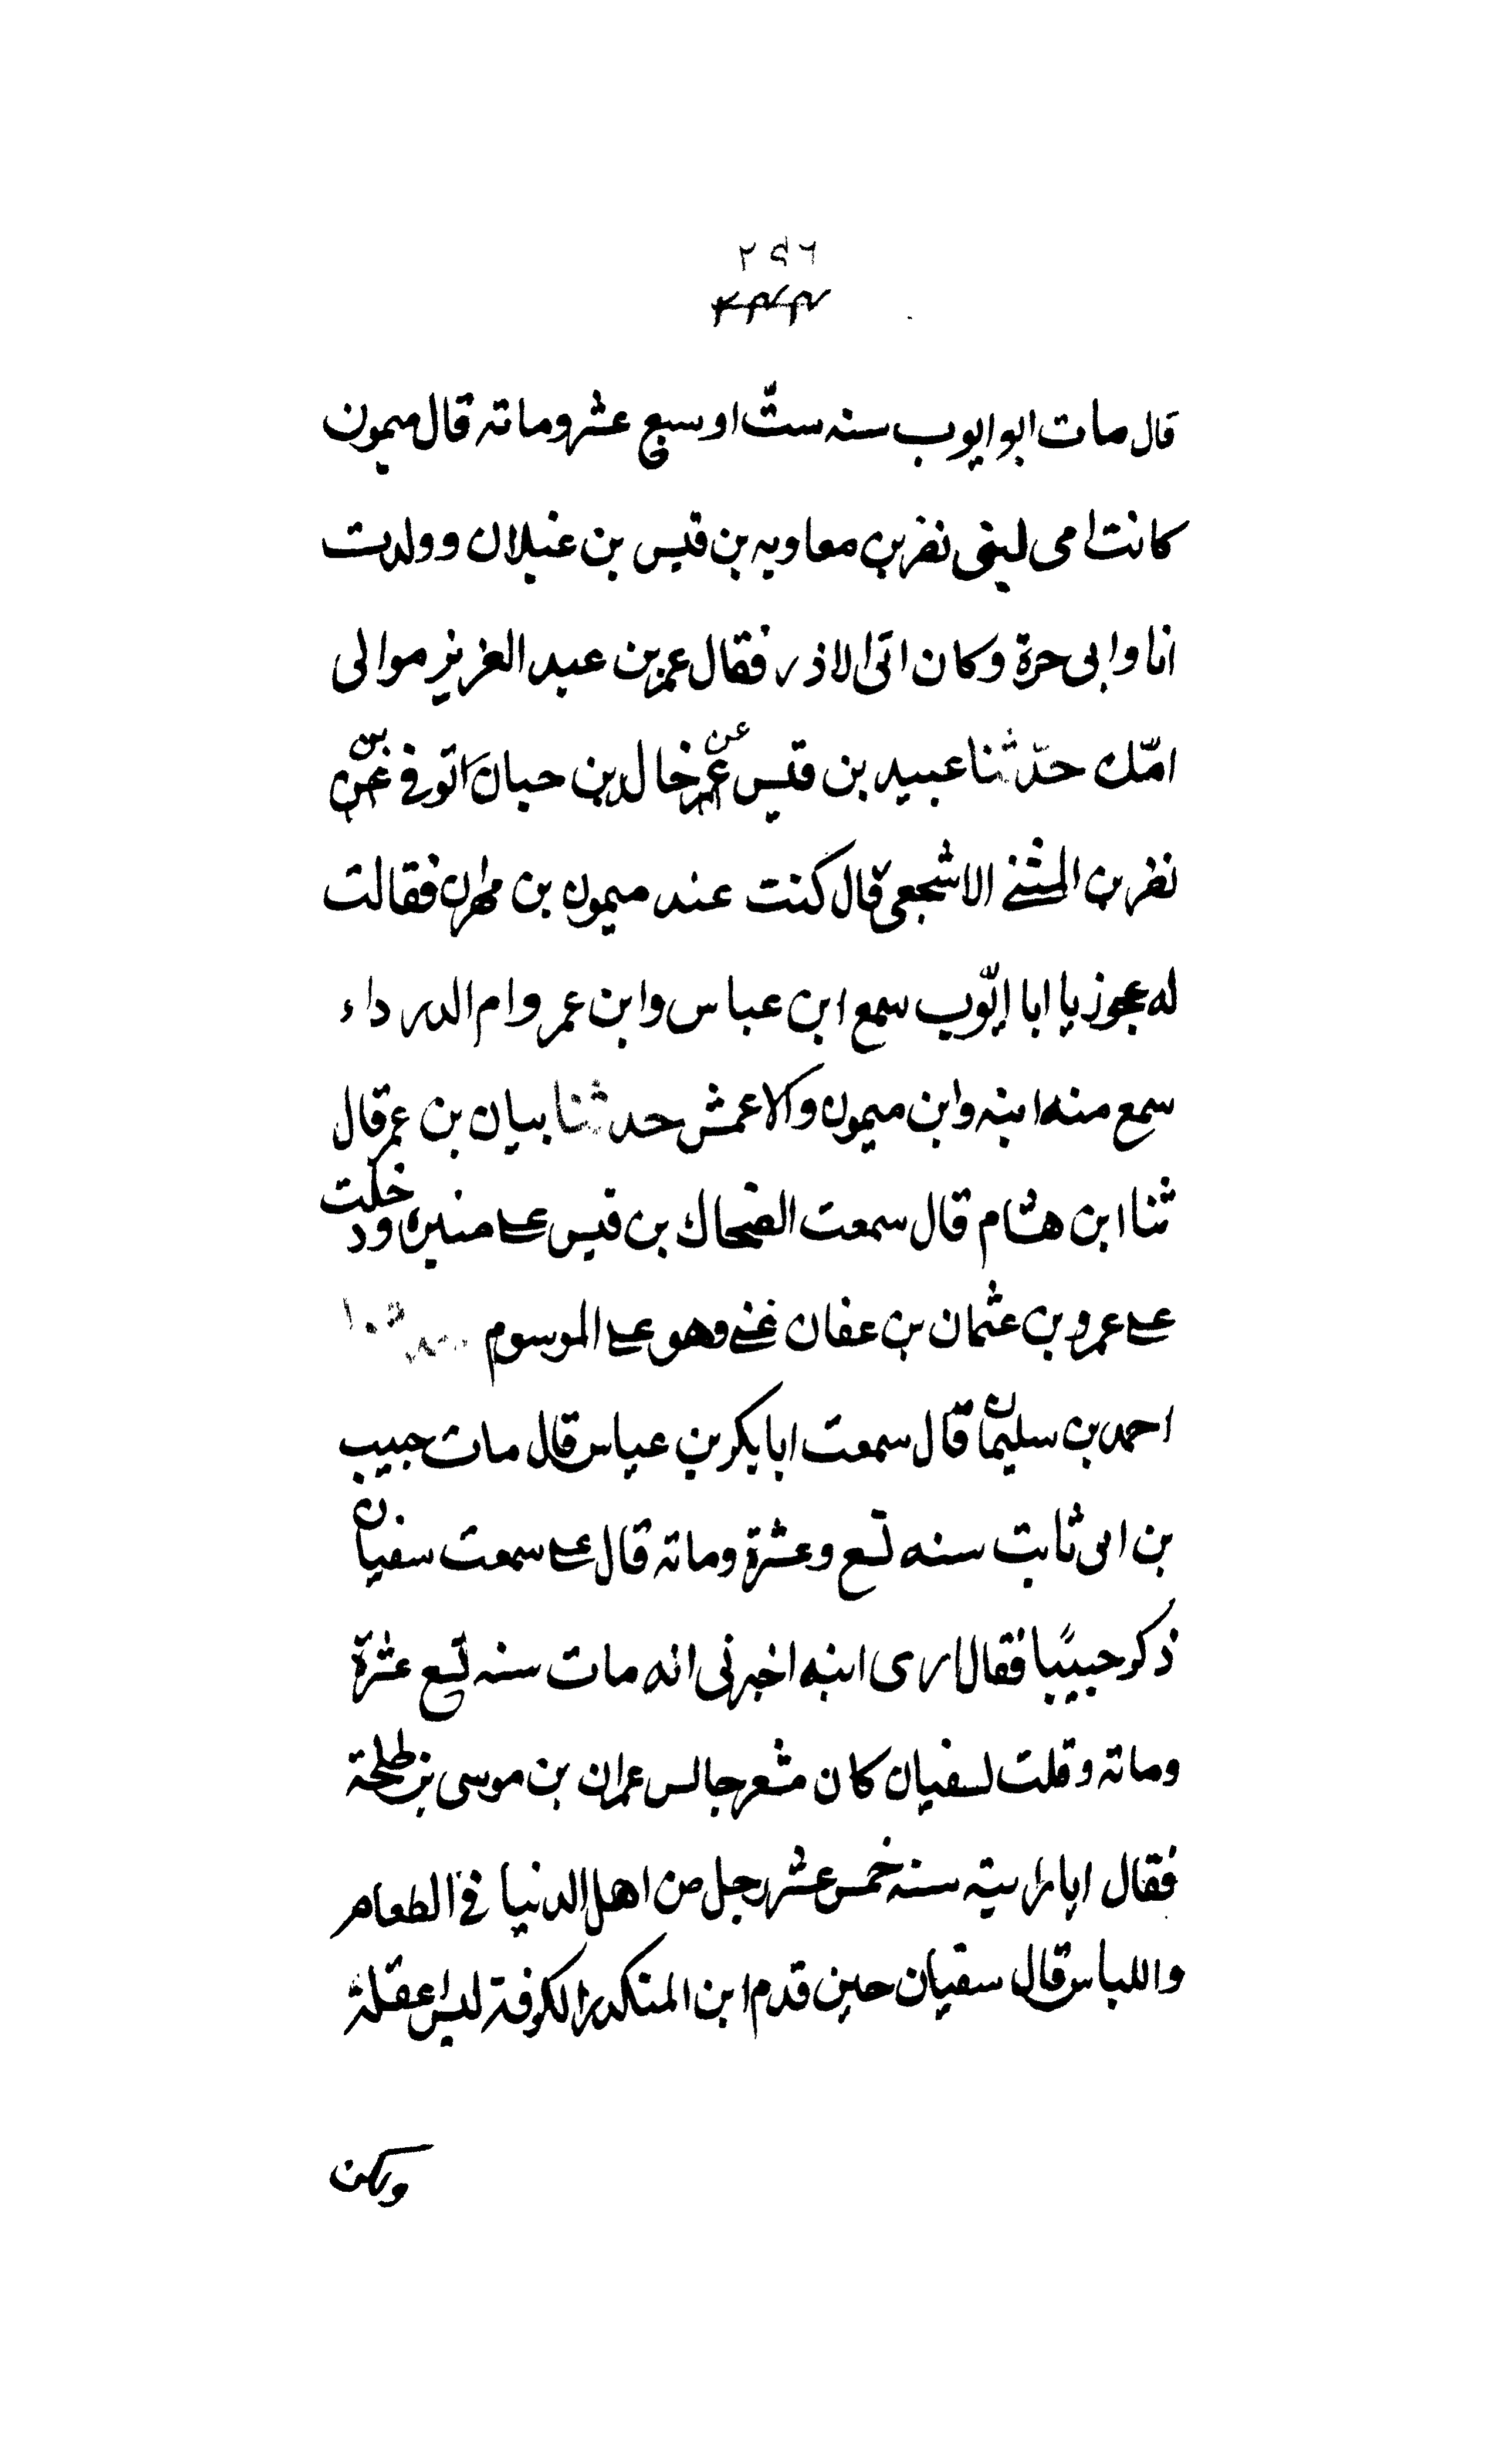 ٢٩٦
قال مات ابو ايوب سنه ستّ او سبع عشر وماته قال ميمون
كانت امى لبنى نضر بن معاويه بن قيس بن غيلان وولدت
انا وابى حرة وكان اتى الاذر فقال عمر بن عبد العزيز موالى
امّك حدّثنا عبيد بن قيس عن خالد بن حبان اتوفى عن
نضر بن المثنى الاشجعى قال كنت عند ميمون بن مهران فقالت
له عجوز يا ابا ايّوب سمع ابن عباس وابن عمر وام الدرداء
سمع منه ابنه وابن ميمون والاعمش حدثنا بيان بن عمر قال
ثنا ابن هشام قال سمعت الضحاك بن قيس على منبره ودخلت
على عمرو بن عثمان بن عفان غنى وهو على الموسوم
احمد بن سليمان قال سمعت ابا بكر بن عياس قال مات حبيب
بن ابى ثابت سنه تسع وعشرة وماته قال على سمعت سفيان
ذكر حبيبًا فقال ارى ابنه اخبرنى انه مات سنه تسع عشرة
وماته وقلت لسفيان كان مشعر جالس عمران بن موسى بن طلحة
فقال سنه خمس عشر رجل من اهل الدنيا فى الطعام
واللباس قال سفيان حين قدم ابن المنكدر الكوفة ليس
ولكن